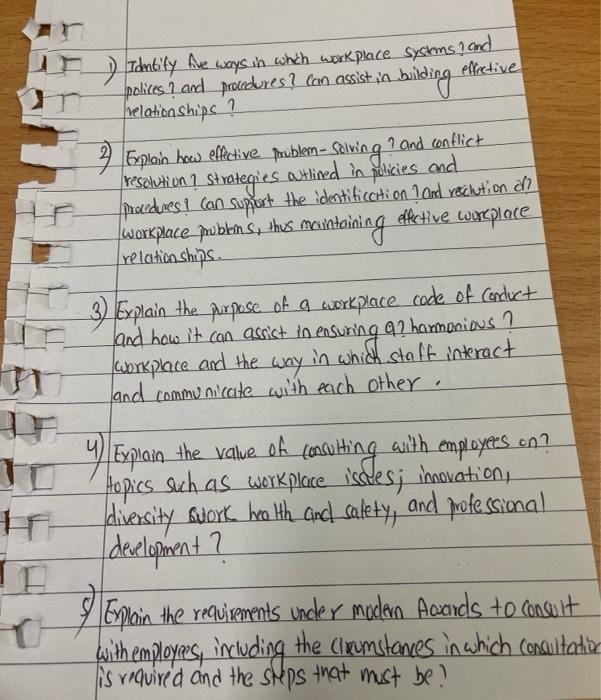 1) Identify five ways in which workplace systems? and
polices? and procedures? Can assist in building effective
relationships?
2) Explain how effective problem-solving? and conflict
resolution? strategies outlined in policies and
procedures? Can support the identification? and resolution of?
workplace problems, thus maintaining effective workplace
relationships.
3) Explain the purpose of a workplace code of Conduct
and how it can assist in ensuring a? harmonious?
workplace and the way in which staff interact
and communicate with each other.
4) Explain the value of consulting with employees on?
topics such as workplace issues; innovation,
diversity work health and safety, and professional
development?
5) Explain the requirements under modern Awards to consult
with employees, including the circumstances in which consultation
is required and the steps that must be?